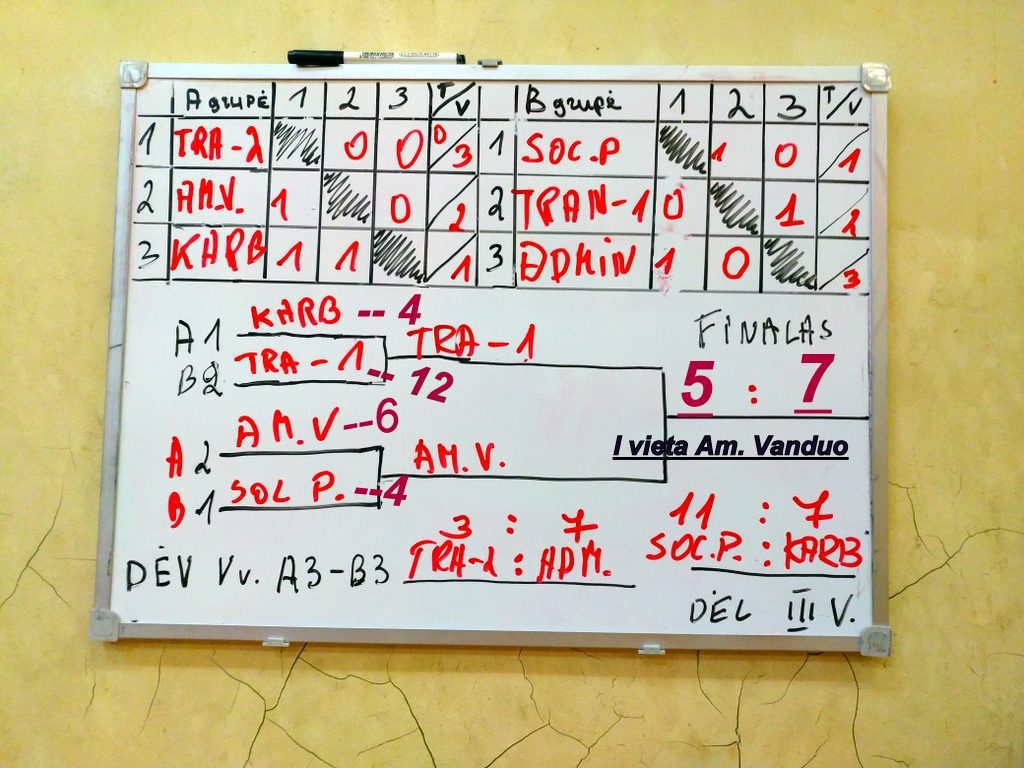 A grupė 1 2 3 T/V B grupė 1 2 3 T/V
1 TRA-2 0 0 0/3 1 SOC.P 1 0 /1
2 AM.V. 1 0 /2 2 TRAN-1 0 1 /2
3 KARB 1 1 /1 3 ADMIN 1 0 /3
A1 KARB -- 4
TRA-1
B2 TRA-1 -- 12
FINALAS
5 : 7
I vieta Am. Vanduo
A2 AM.V --6
AM.V.
B1 SOL P. --4
3 : 7
11 : 7
DĖV Vv. A3-B3 TRA-2 : ADM.
SOC.P. : KARB
DĖL III V.